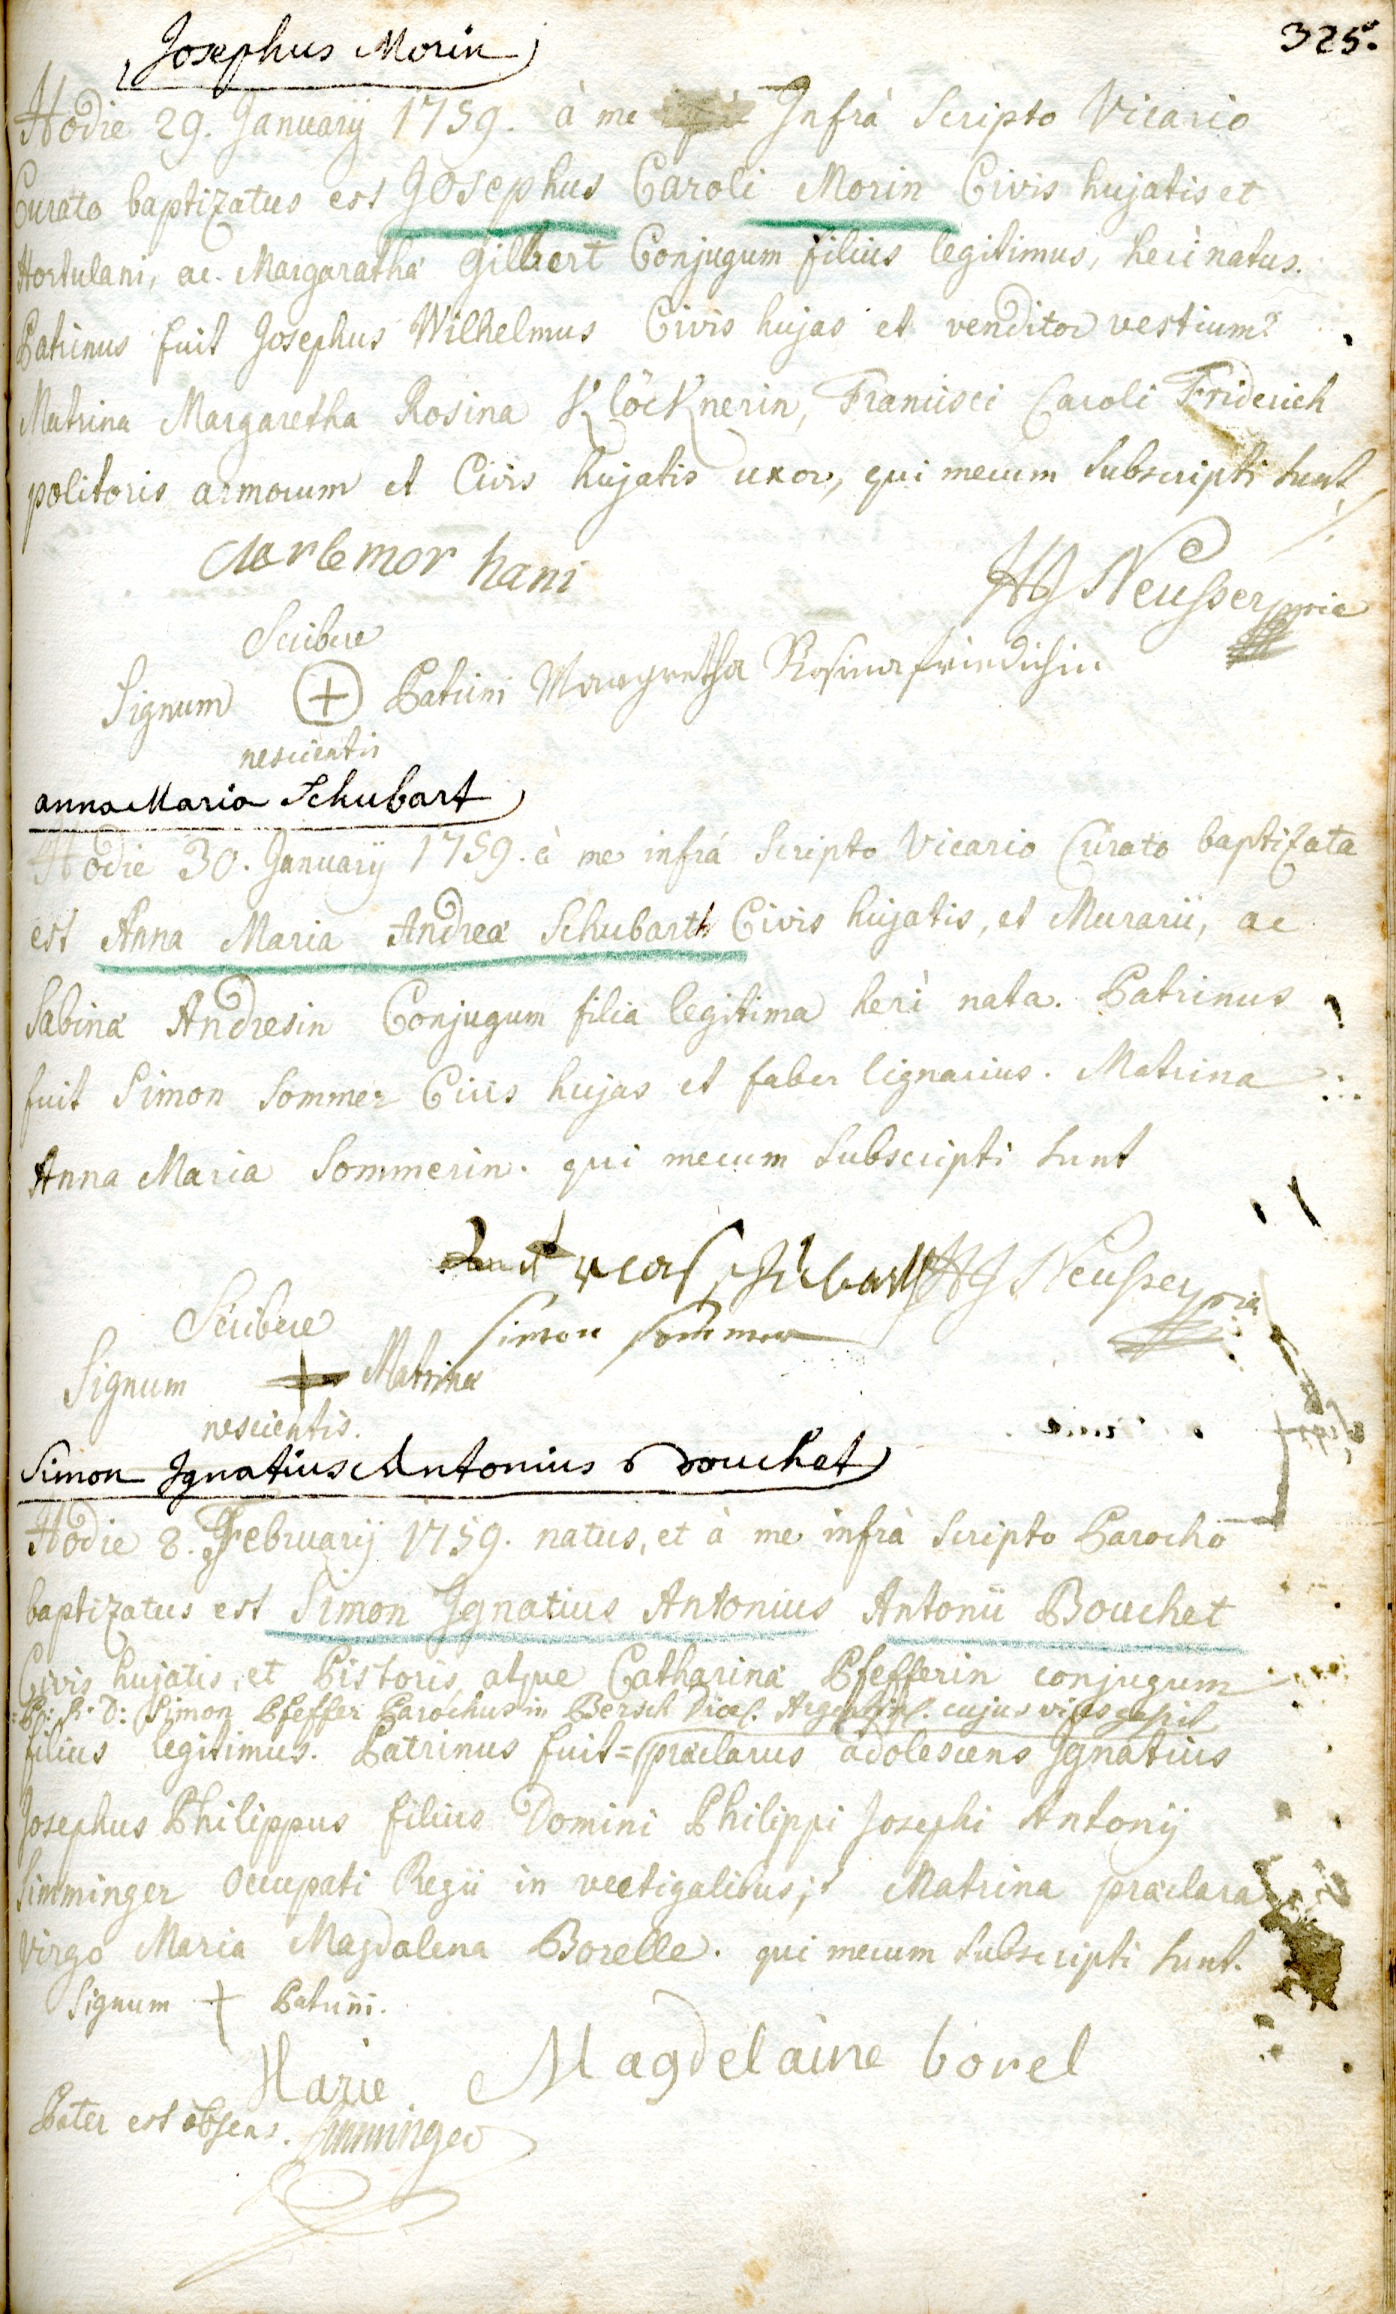 325.
Josephus Morin
Hodie 29. Januarÿ 1759. à me Infrà Scripto Vicario
Curato baptizatus est Josephus Caroli Morin Civis hujatis et
Hortulani, ac Margaratha Gilbert Conjugum filius legitimus, heri natus.
Patrinus fuit Josephus Wilhelmus Civis hujas et venditor vestium
Matrina Margaretha Rosina Klöcknerin, Francisci Caroli Friderich
politoris armorum et Civis hujatis uxor, qui mecum subscripti sunt.
HJ Neusser
Scribere
Signum + Patrini Margretha Rosina friedichin
nescientis
anna Maria Schubart
Hodie 30. Januarÿ 1759. à me infrà Scripto Vicario Curato baptizata
est Anna Maria Andreæ Schubarth Civis hujatis, et Murarii, ac
Sabinæ Andresin Conjugum filia legitima herì nata. Patrinus
fuit Simon Sommer Civis hujas et faber lignarius. Matrina
Anna Maria Sommerin. qui mecum subscripti sunt
HJ Neusser
Scribere
simon sommer
Signum + Matrinæ
nescientis.
Simon Ignatius Antonius Bouchet
Hodie 8. Februarÿ 1759. natus, et à me infrà Scripto Parocho
baptizatus est Simon Ignatius Antonius Antonii Bouchet
Civis hujatis, et Pistoris, atque Catharinæ Pfefferin conjugum
R. D: Simon Pfeffer Parochus in Bersch Diœc. Argentin. cujus vices gessit
filius legitimus. Patrinus fuit= præclarus adolescens Ignatius
Josephus Philippus filius Domini Philippi Josephi Antonÿ
Simminger Occupati Regii in vectigalibus; Matrina præclara
Virgo Maria Magdalena Borelle. qui mecum subscripti sunt.
Signum + Patrini.
Marie Magdelaine borel
Pater est absens. Simminger